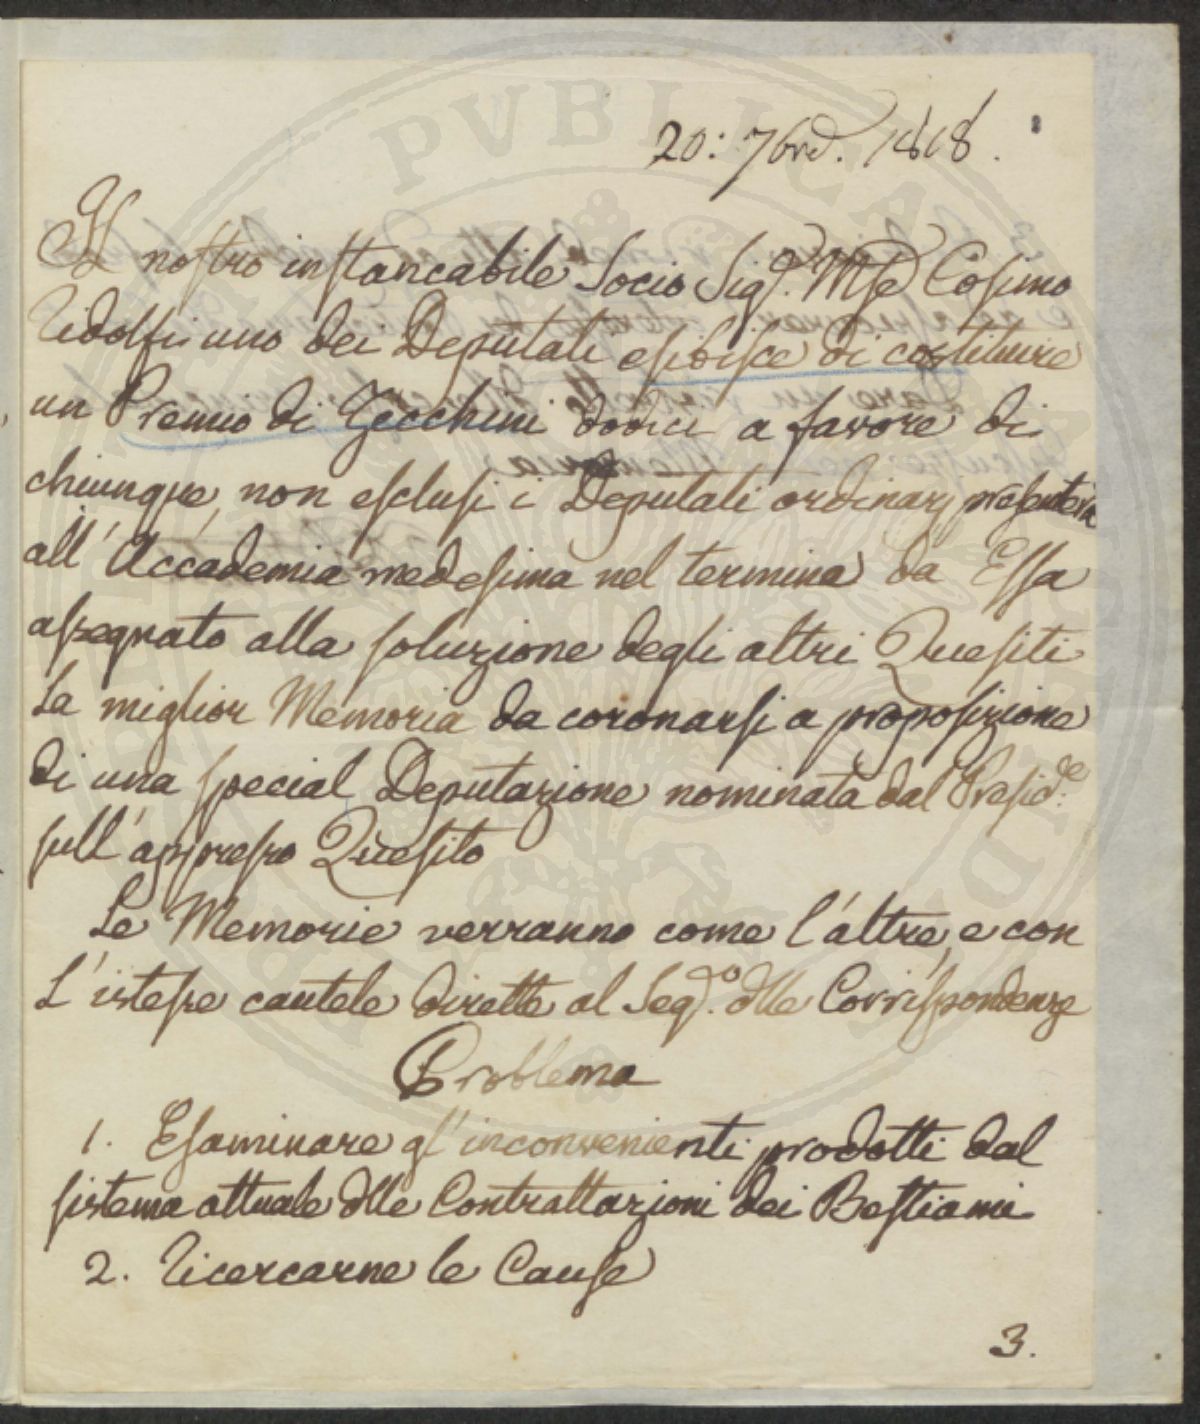 20: 7bre. 1818.
Il nostro instancabile Socio Sigr. Mse Cosimo
Ridolfi uno dei Deputati esibisce di costituire
un Premio di Zecchini dodici a favore di
chiunque, non esclusi i Deputati ordinarj presenterà
all'Accademia medesima nel termine da Essa
assegnato alla soluzione degli altri Quesiti
La miglior Memoria da coronarsi a proposizione
di una special Deputazione nominata dal Preside.
sull'appresso Quesito
Le Memorie verranno come l'altre, e con
L'istesse cautele dirette al Segro. dlle Corrispondenze
Problema
1. Esaminare gl'inconvenienti prodotti dal
sistema attuale dlle Contrattazioni dei Bestiami
2. Ricercarne le Cause
3.